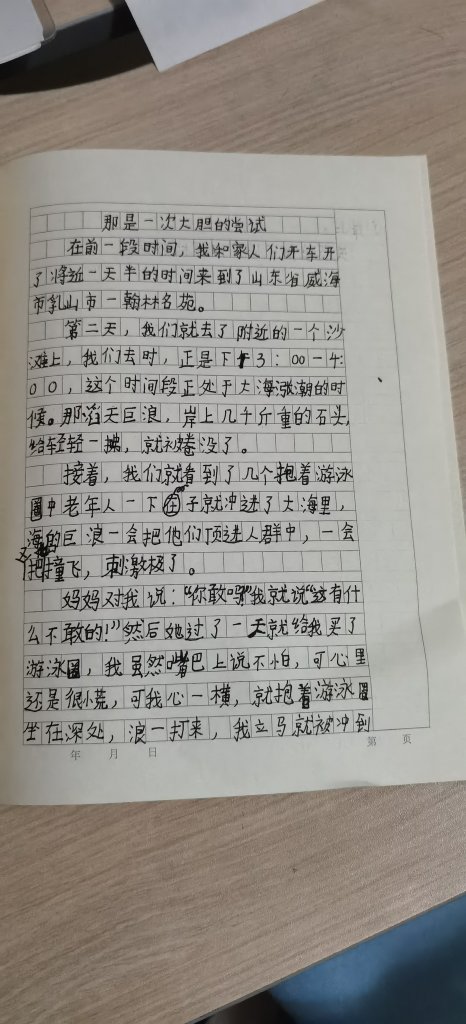 那是一次大胆的尝试
在前一段时间，我和家人们开车开
了将近一天半的时间来到了山东省威海
市乳山市一翰林名苑。
第二天，我们就去了附近的一个沙
滩上，我们去时，正是下午3：00-4：
00，这个时间段正处于大海涨潮的时
候。那滔天巨浪，岸上几千斤重的石头，
给轻轻一拂，就被卷没了。
接着，我们就看到了几个抱着游泳
圈中老年人一下在子就冲进了大海里，
海的巨浪一会把他们顶进人群中，一会
把撞飞，刺激极了。
妈妈对我说："你敢吗"我就说"这有什
么不敢的！"然后她过了一天就给我买了
游泳圈，我虽然嘴巴上说不怕，可心里
还是很小慌，可我心一横，就抱着游泳圈
坐在深处，浪一打来，我立马就被冲到
年 月 日
第 页